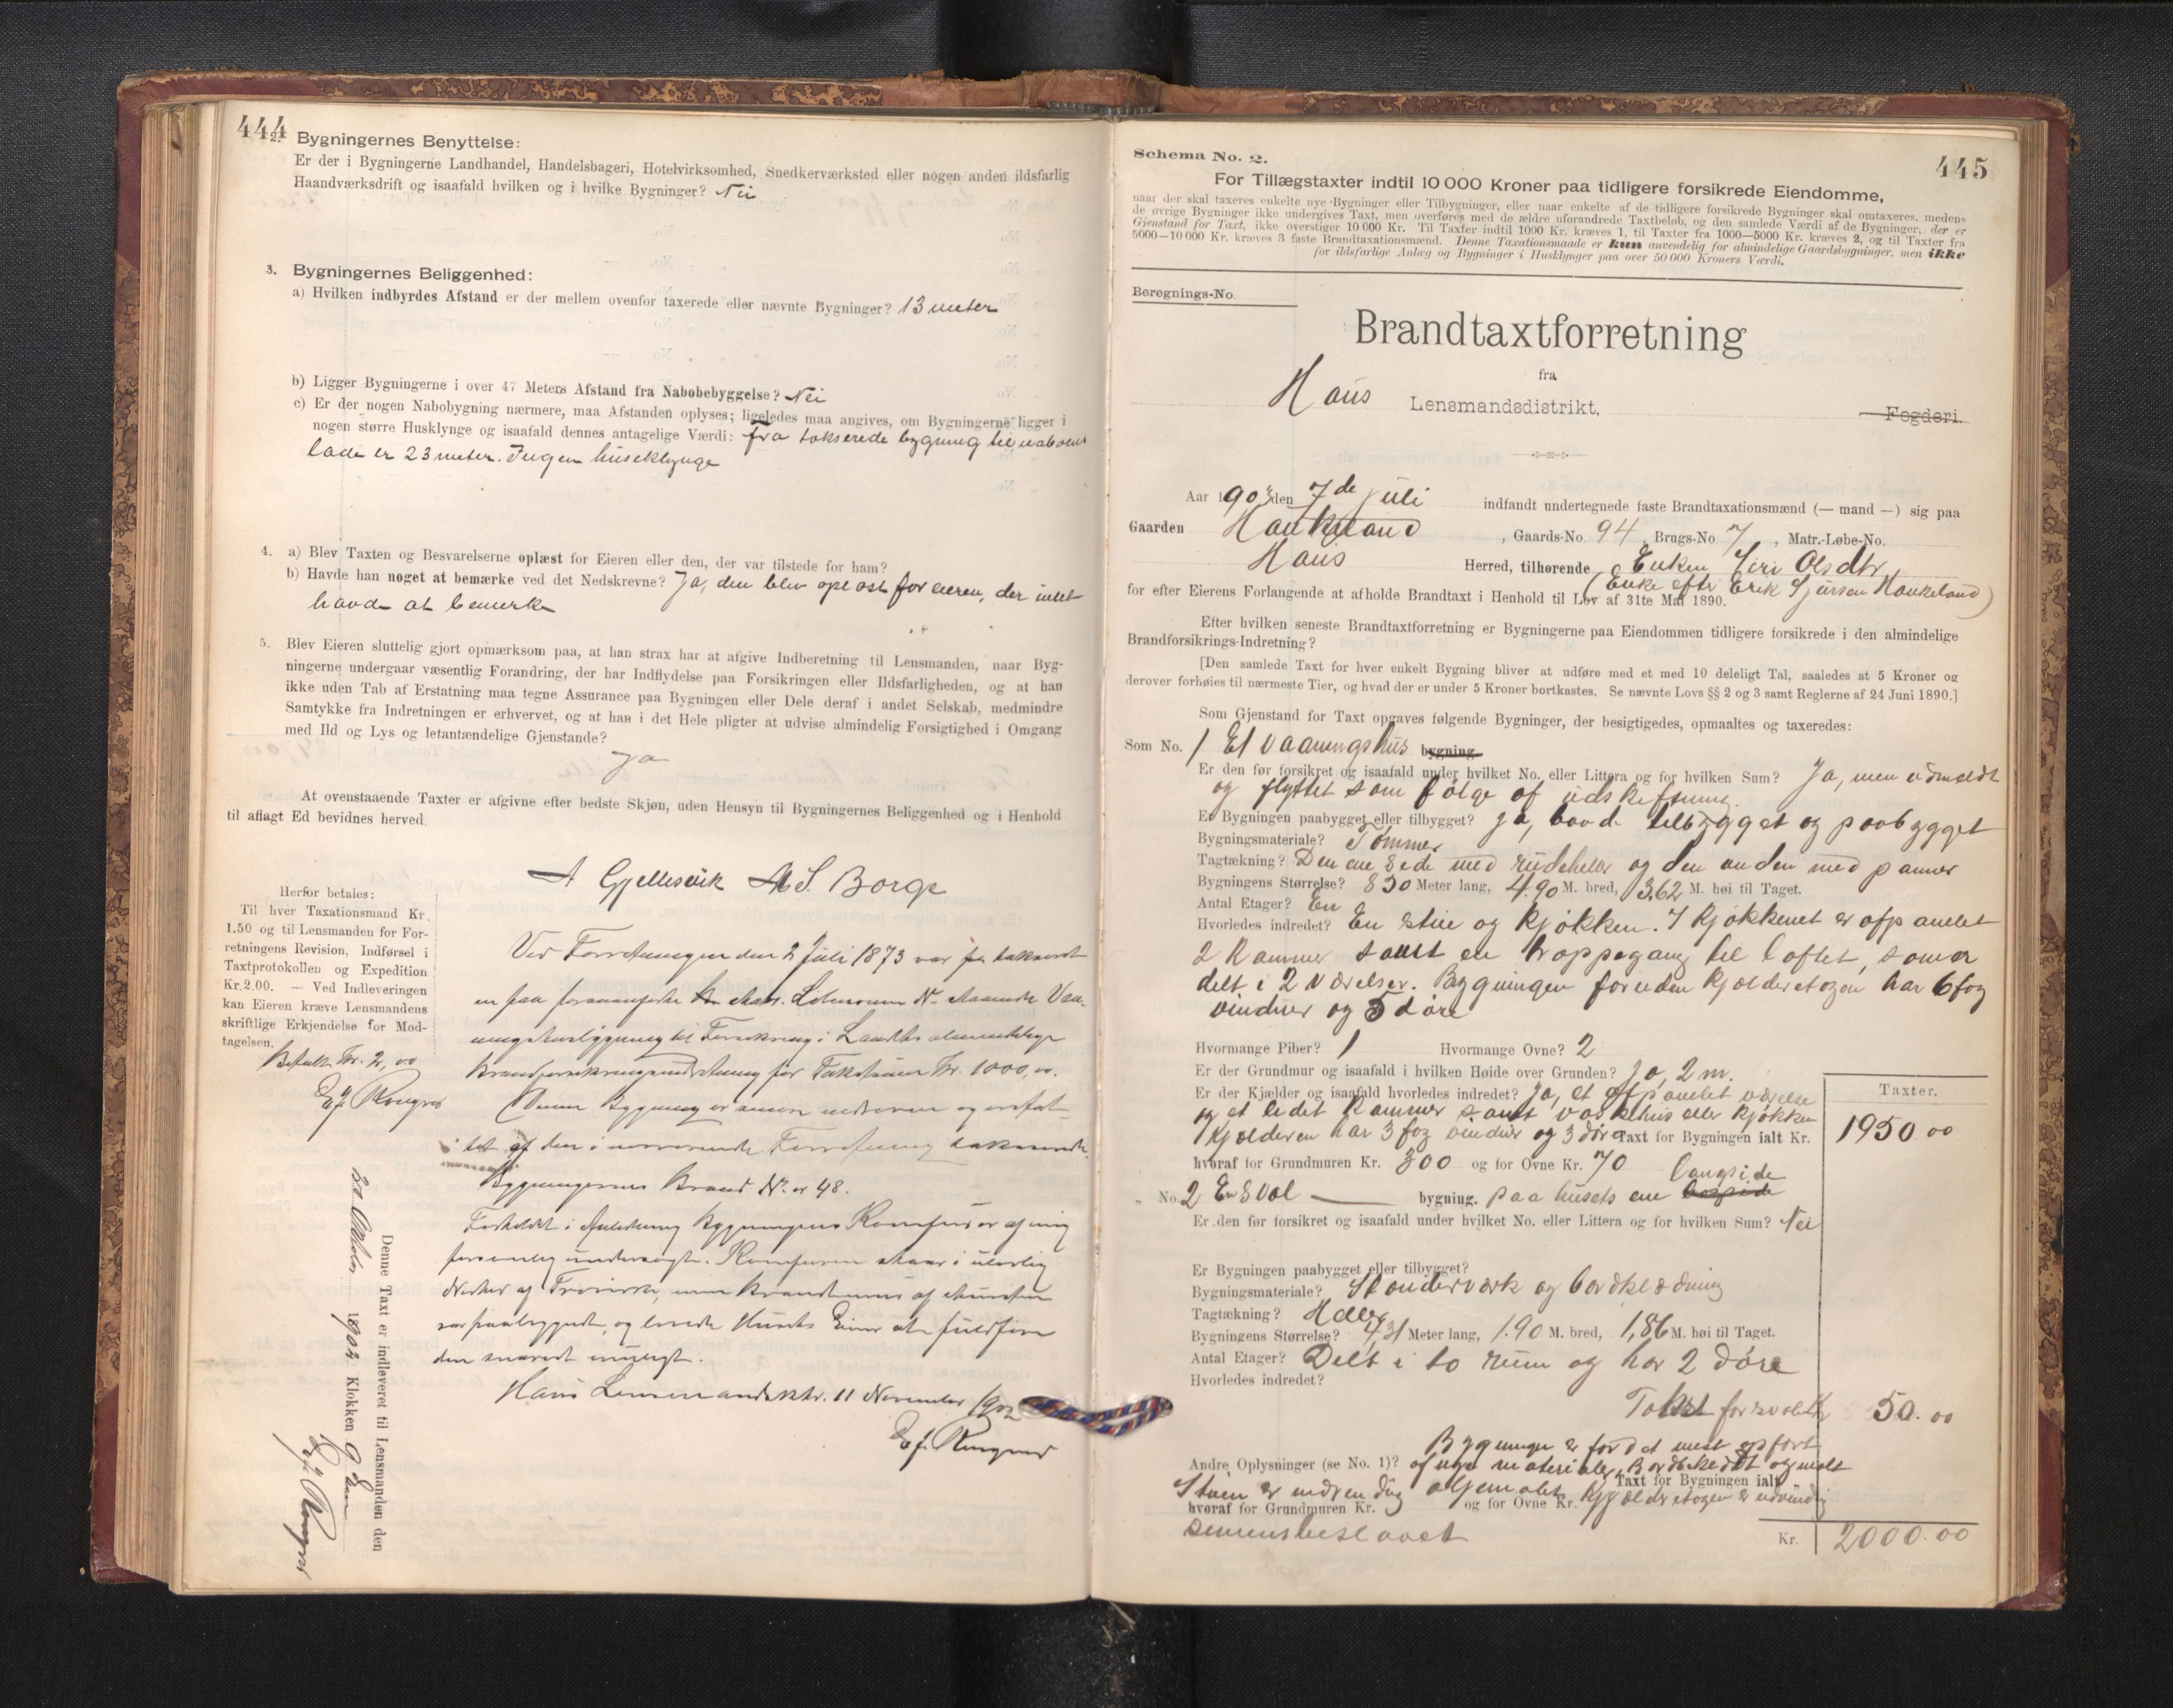 444
2. Bygningernes Benyttelse:
Er der i Bygningerne Landhandel, Handelsbageri, Hotelvirksomhed, Snedkerværksted eller nogen anden ildsfarlig
Haandværksdrift og isaafald hvilken og i hvilke Bygninger? Nei
3. Bygningernes Beliggenhed:
a) Hvilken indbyrdes Afstand er der mellem ovenfor taxerede eller nævnte Bygninger? 13 meter
b) Ligger Bygningerne i over 47 Meters Afstand fra Nabobebyggelse? Nei
c) Er der nogen Nabobygning nærmere, maa Afstanden oplyses; ligeledes maa angives, om Bygningerne ligger i
nogen større Husklynge og isaafald dennes antagelige Værdi: fra takserede bygning til naboens
lade er 23 meter. Ingen huseklynge
4. a) Blev Taxten og Besvarelserne oplæst for Eieren eller den, der var tilstede for ham?
b) Havde han noget at bemærke ved det Nedskrevne? Ja, den blev oplæst for eieren, der intet
havde at bemerke
5. Blev Eieren sluttelig gjort opmærksom paa, at han strax har at afgive Indberetning til Lensmanden, naar Byg-
ningerne undergaar væsentlig Forandring, der har Indflydelse paa Forsikringen eller Ildsfarligheden, og at han
ikke uden Tab af Erstatning maa tegne Assurance paa Bygningen eller Dele deraf i andet Selskab, medmindre
Samtykke fra Indretningen er erhvervet, og at han i det Hele pligter at udvise almindelig Forsigtighed i Omgang
med Ild og Lys og letantændelige Gjenstande?
Ja
At ovenstaaende Taxter er afgivne efter bedste Skjøn, uden Hensyn til Bygningernes Beliggenhed og i Henhold
til aflagt Ed bevidnes herved.
A Gjellesvik M S. Borge
Herfor betales:
Til hver Taxationsmand Kr.
1.50 og til Lensmanden for For-
retningens Revision, Indførsel i
Taxtprotokollen og Expedition
Kr. 2.00. — Ved Indleveringen
kan Eieren kræve Lensmandens
skriftlige Erkjendelse for Mod-
tagelsen.
Betalt Kr. 2,00
Ved Forretningen den 2 Juli 1873 var taksert
en paa foranførte Matr. Løbenum No. staaende Vaa-
ningshusbygning til Forsikring i Landets almindelige
Brandforsikringsindretning for Takstsum Kr. 1000,00.
Denne Bygning er senere nedreven og erstat-
tet af den i nærværende Forretning takserede.
Bygningernes Brand No. er 48.
Forholdet i Anledning Bygningens Komfur er af mig
personlig undersøgt. Komfuren staar i
af men Brandmur af Mursten
var paabegyndt, og lovede Husets Eier at fuldføre
den snarest muligt.
Haus Lensmandsdistr. 11 November 1902
Denne Taxt er indleveret til Lensmanden den
20 Oktober 1902 Klokken 9 Em
445
Schema No. 2.
For Tillægstaxter indtil 10 000 Kroner paa tidligere forsikrede Eiendomme,
naar der skal taxeres enkelte nye Bygninger eller Tilbygninger, eller naar enkelte af de tidligere forsikrede Bygninger skal omtaxeres, medens
de øvrige Bygninger ikke undergives Taxt, men overføres med de ældre uforandrede Taxtbeløb, og den samlede Værdi af de Bygninger, der er
Gjenstand for Taxt, ikke overstiger 10 000 Kr. Til Taxter indtil 1000 Kr. kræves 1, til Taxter fra 1000—5000 Kr. kræves 2, og til Taxter fra
5000—10 000 Kr. kræves 3 faste Brandtaxationsmænd. Denne Taxationsmaade er kun anvendelig for almindelige Gaardsbygninger, men ikke
for ildsfarlige Anlæg og Bygninger i Husklynger paa over 50 000 Kroners Værdi.
Beregnings-No.
Brandtaxtforretning
fra
Haus Lensmandsdistrikt, Fogderi.
Aar 1902 den 7de Juli indfandt undertegnede faste Brandtaxationsmænd (— mand —) sig paa
Gaarden Haukeland, Gaards-No. 94, Brugs-No 7, Matr.-Løbe-No.
Haus Herred, tilhørende Enken Siri Olsdtr
(Enke efter Erik Sjursen Haukeland)
for efter Eierens Forlangende at afholde Brandtaxt i Henhold til Lov af 31te Mai 1890.
Efter hvilken seneste Brandtaxtforretning er Bygningerne paa Eiendommen tidligere forsikrede i den almindelige
Brandforsikrings-Indretning?
[Den samlede Taxt for hver enkelt Bygning bliver at udføre med et med 10 deleligt Tal, saaledes at 5 Kroner og
derover forhøies til nærmeste Tier, og hvad der er under 5 Kroner bortkastes. Se nævnte Lovs §§ 2 og 3 samt Reglerne af 24 Juni 1890.]
Som Gjenstand for Taxt opgaves følgende Bygninger, der besigtigedes, opmaaltes og taxeredes:
Som No. 1 Et vaaningshus bygning
Er den før forsikret og isaafald under hvilket No. eller Littera og for hvilken Sum? Ja, men udmeldt
og flyttet som følge af udskiftning.
Er Bygningen paabygget eller tilbygget? Ja, baade tilbygget og paabygget
Bygningsmateriale? Tømmer
Tagtækning? Den ene side med rudeheller og den anden med panner
Bygningens Størrelse? 830 Meter lang, 4.90 M. bred, 3.62 M. høi til Taget.
Antal Etager? En
Hvorledes indredet? En stue og kjøkken. I kjøkkenet er afpanelet
2 kammer samt en trappegang til loftet, som er
delt i 2 værelser. Bygningen foruden kjælderetagen har 6 fag
vinduer og 5 døre
Hvormange Piber? 1 Hvormange Ovne? 2
Er der Grundmur og isaafald i hvilken Høide over Grunden? Ja, 2 m.
Er der Kjælder og isaafald hvorledes indredet? Ja, et afpanelet værelse
og et lidet kammer samt vaskehus eller kjøkken
Kjælderen har 3 fag vinduer og 3 døre Taxt for Bygningen ialt Kr.
Taxter.
1950 00
hvoraf for Grundmuren Kr. 300 og for Ovne Kr. 70
„ No. 2 En sval — bygning. paa husets ene langside
Er den før forsikret og isaafald under hvilket No. eller Littera og for hvilken Sum? Nei
Er Bygningen paabygget eller tilbygget?
Bygningsmateriale? Standerværk og bordklædning
Tagtækning? Heller
Bygningens Størrelse? 4,31 Meter lang, 1.90 M. bred, 1,86 M. høi til Taget.
Antal Etager? Delt i to rum og har 2 døre
Hvorledes indredet?
Takst for sval Kr 50. 00
Bygningen er for det mest opført
Andre Oplysninger (se No. 1)? af nye materialer, Bordklædt og malt
Taxt for Bygningen ialt
Stuen er indvendig oljemalet. Kjælderetagen er udvendig
hvoraf for Grundmuren Kr. og for Ovne Kr.
sementbeslaaet
Kr. 2000.00